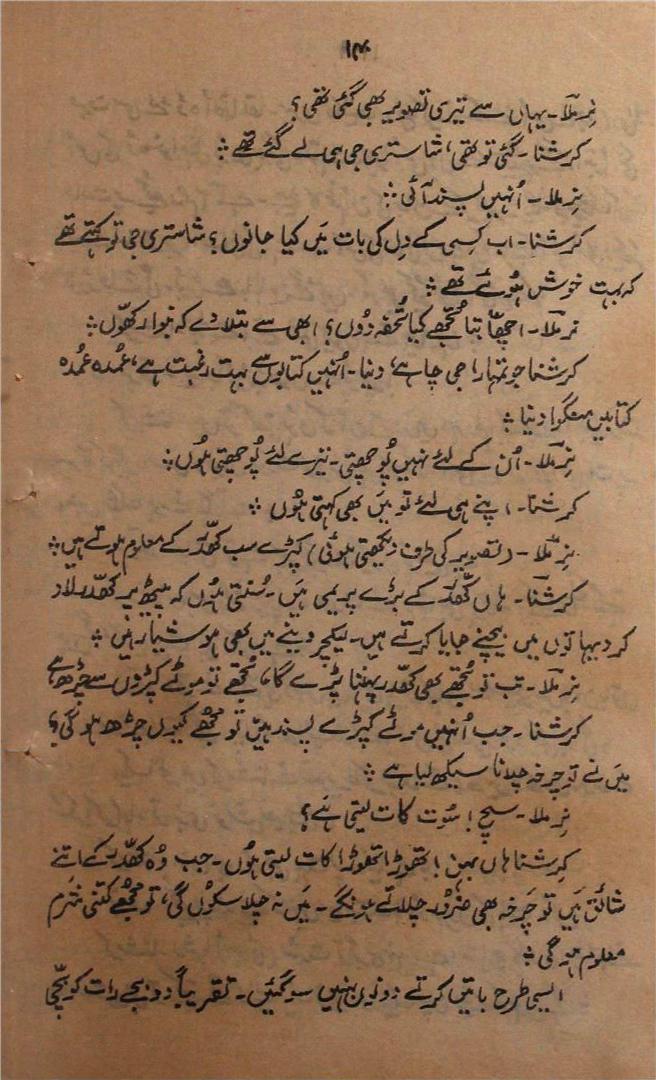 نرملا۔ یہاں سے تیری تصویر بھی گئی تھی؟
کرشنا۔ گئی تو تھی، شاستری جی ہی لے گئے تھے ۔:
نرملا۔ اُنہیں پسند آئی ۔:
کرشنا۔ اب کسی کے دِل کی بات میں کیا جانوں؟ شاستری جی تو کہتے تھے
کہ بہت خوش ہوئے تھے ۔:
نرملا۔ اچھا بتا تجھے کیا تُحفہ دوں؟ ابھی سے بتلا دے کہ بنوا رکھوں ۔:
کرشنا جو تمہارا جی چاہے، دینا۔ اُنہیں کتابوں سے بہت رغبت ہے، عُمدہ عُمدہ
کتابیں منگوا دینا ۔:
نرملا۔ اُن کے لئے نہیں پُوچھتی۔ تیرے لئے پُوچھتی ہوں ۔:
کرشنا۔ اپنے ہی لئے تو میں بھی کہتی ہوں ۔:
نرملا۔ (تصویر کی طرف دیکھتی ہوئی) کپڑے سب کھدّر کے معلوم ہوتے ہیں ۔:
کرشنا۔ ہاں کھدّر کے بڑے پریمی ہیں۔ سُنتی ہوں کہ پیٹھ پر کھدّر لاد
کر دیہاتوں میں بیچنے جایا کرتے ہیں۔ لیکچر دینے میں بھی ہوشیار ہیں ۔:
نرملا۔ تب تو تجھے بھی کھدّر پہننا پڑے گا، تجھے تو موٹے کپڑوں سے چڑھ ہے
کرشنا۔ جب اُنہیں موٹے کپڑے پسند ہیں تو مجھے کیوں چڑھ ہو گی؟
میں نے تو چرخہ چلانا سیکھ لیا ہے ۔:
نرملا۔ سچ! سُوت کات لیتی ہے؟
کرشنا ہاں بہن! تھوڑا تھوڑا کات لیتی ہوں۔ جب وُہ کھدّر کے اتنے
شائق ہیں تو چرخہ بھی ضرور چلاتے ہونگے۔ میں نہ چلا سکوں گی، تو مجھے کتنی شرم
معلوم ہو گی ۔:
ایسی طرح باتیں کرتے دونوں بہنیں سو گئیں۔ تقریباً دو بجے رات کو بچّی